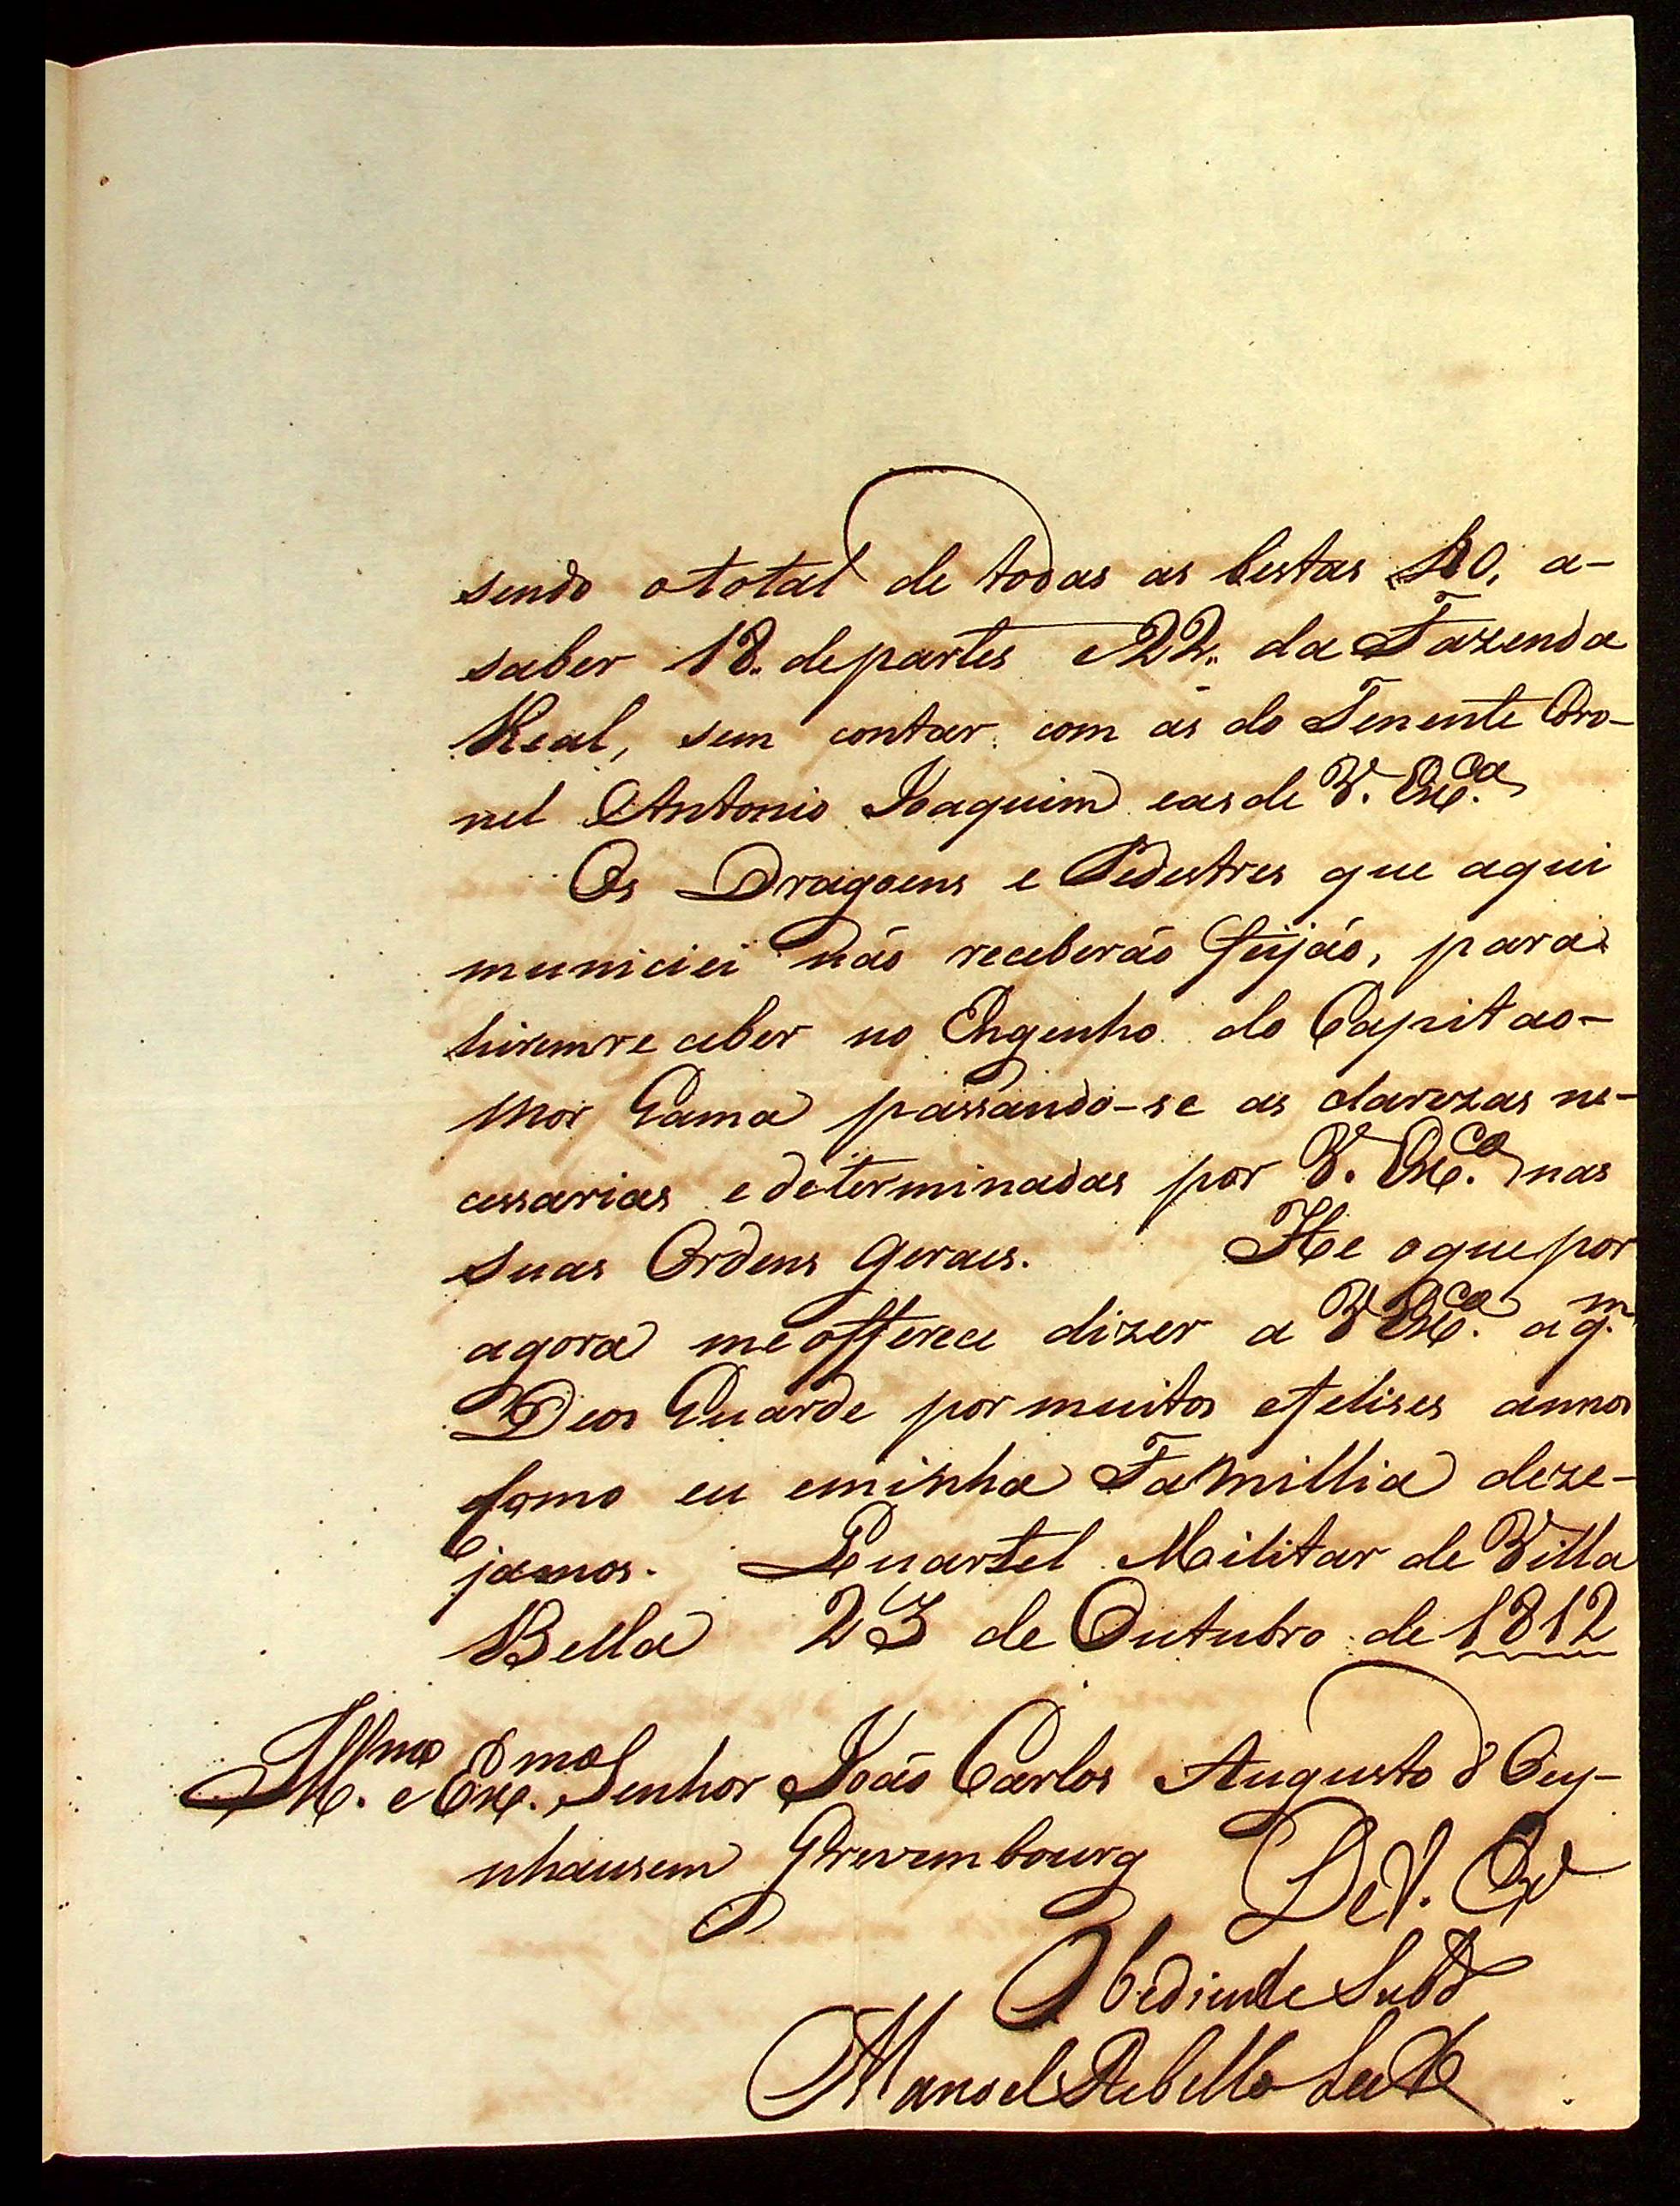 sendo ototal de todas as bestas 40, a-
saber 18. departes e22,, da Fazenda
Real, sem contar com as do Tenente Coro-
nel Antonio Joaquim easde V. Exc.ª
Os Dragoens e Pedestres que aqui
municiei não receberão feijão, para
hiremreceber no Engenho do Capitao-
Mor Gama passando-se as clarezas ne-
cessarias edeterminadas por V. Exc.ª nas
suas Ordens geraes. He oquepor
agora meofferece dizer a V Exc.ª aq.m
Deos Guarde pormuitos efelises annos
como eu eminha Famillia deze-
jamos. Quartel Militar de Villa
Bella 23 de Outubro de 1812
Ill.mo e Exc.mo Senhor João Carlos Augusto d'Oey-
nhausem Grevembourg
De V. Ex.ª
Obediente Subd.º
Manoel Rebello Leite